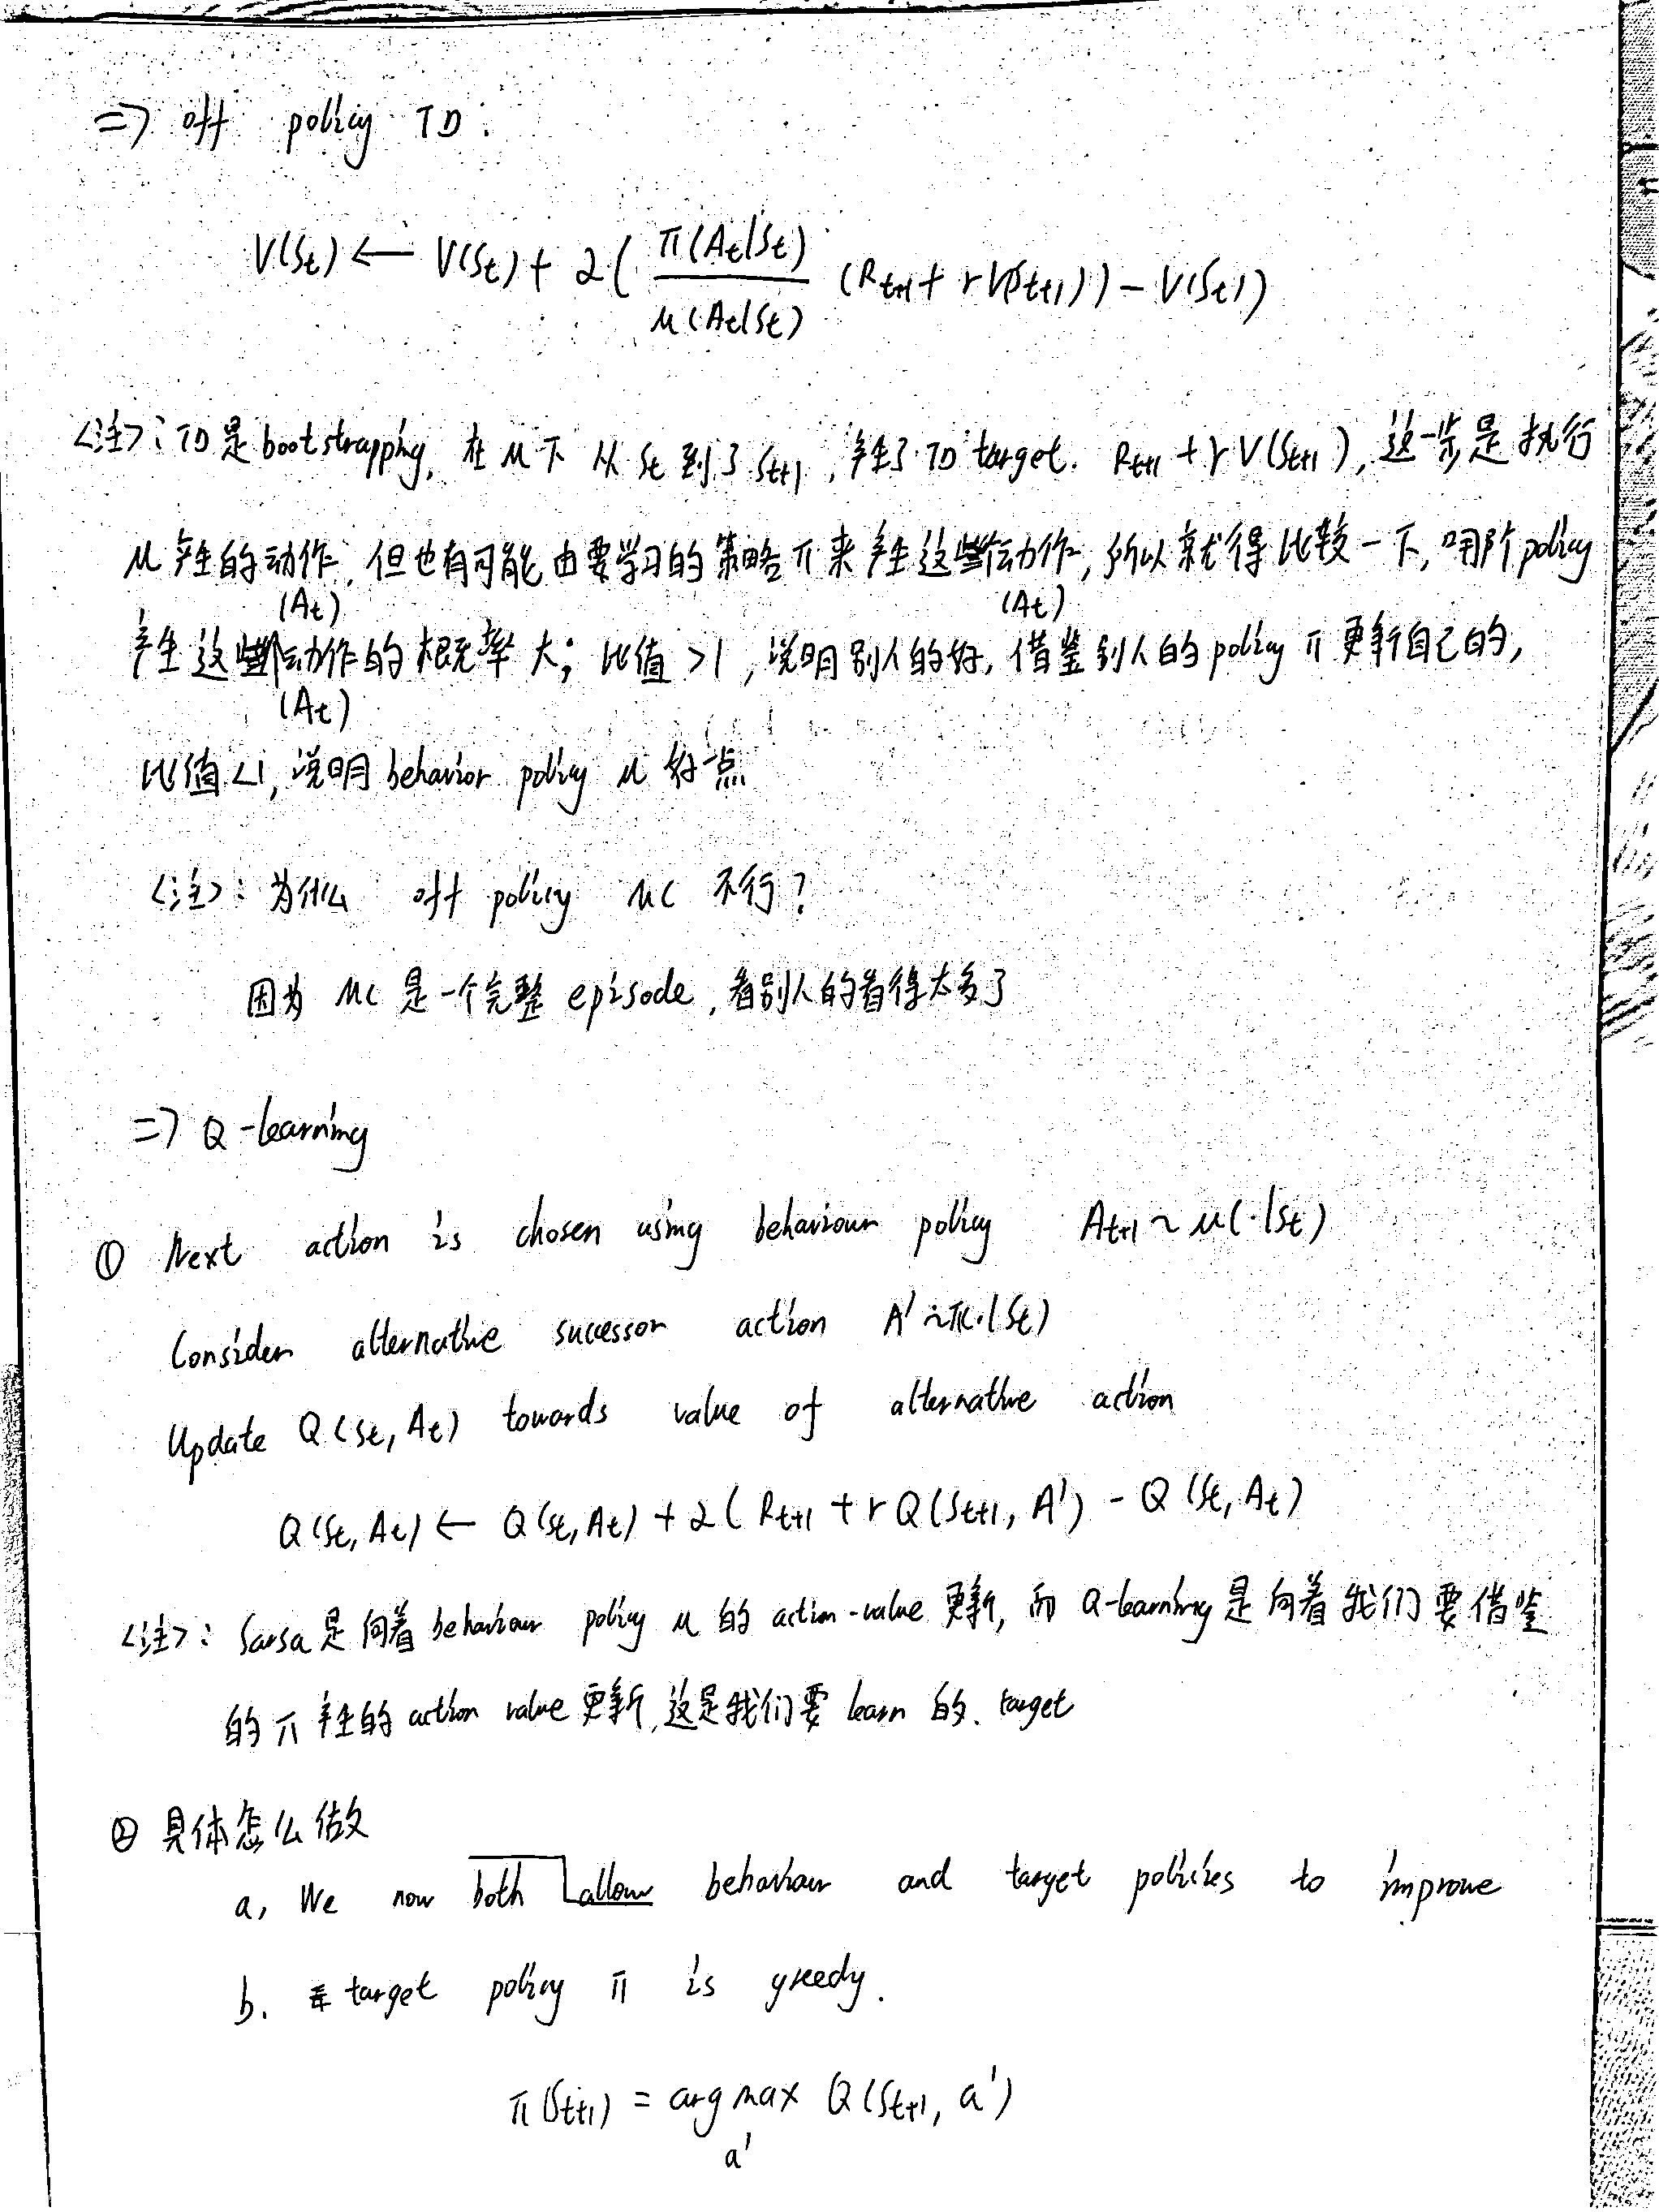 => off policy TD:
V(St) ← V(St) + α( π(At|St) / μ(At|St) (Rt+1 + γV(St+1)) - V(St))
<注>: TD是bootstrapping, 在μ下从St到了St+1, 产生了TD target. Rt+1 + γV(St+1), 这一步是执行
μ产生的动作(At), 但也有可能由要学习的策略π来产生这些动作(At), 所以就得比较一下, 哪个policy
产生这些动作(At)的概率大; 比值>1, 说明别人的好, 借鉴别人的policy π更新自己的,
比值<1, 说明behavior policy μ好一点
<注>: 为什么 off policy MC 不行?
因为 MC 是一个完整episode, 看别人的看得太多了
=> Q-learning
① Next action is chosen using behaviour policy At+1 ~ μ(·|St)
Consider alternative successor action A' ~ π(·|St)
Update Q(St, At) towards value of alternative action
Q(St, At) ← Q(St, At) + α( Rt+1 + γQ(St+1, A') - Q(St, At)
<注>: Sarsa是向着behaviour policy μ的action-value更新, 而Q-learning是向着我们要借鉴
的π产生的action value更新, 这是我们要learn的. target
② 具体怎么做
a, We now both allow behaviour and target policies to improve
b. target policy π is greedy.
π(St+1) = argmax Q(St+1, a')
a'